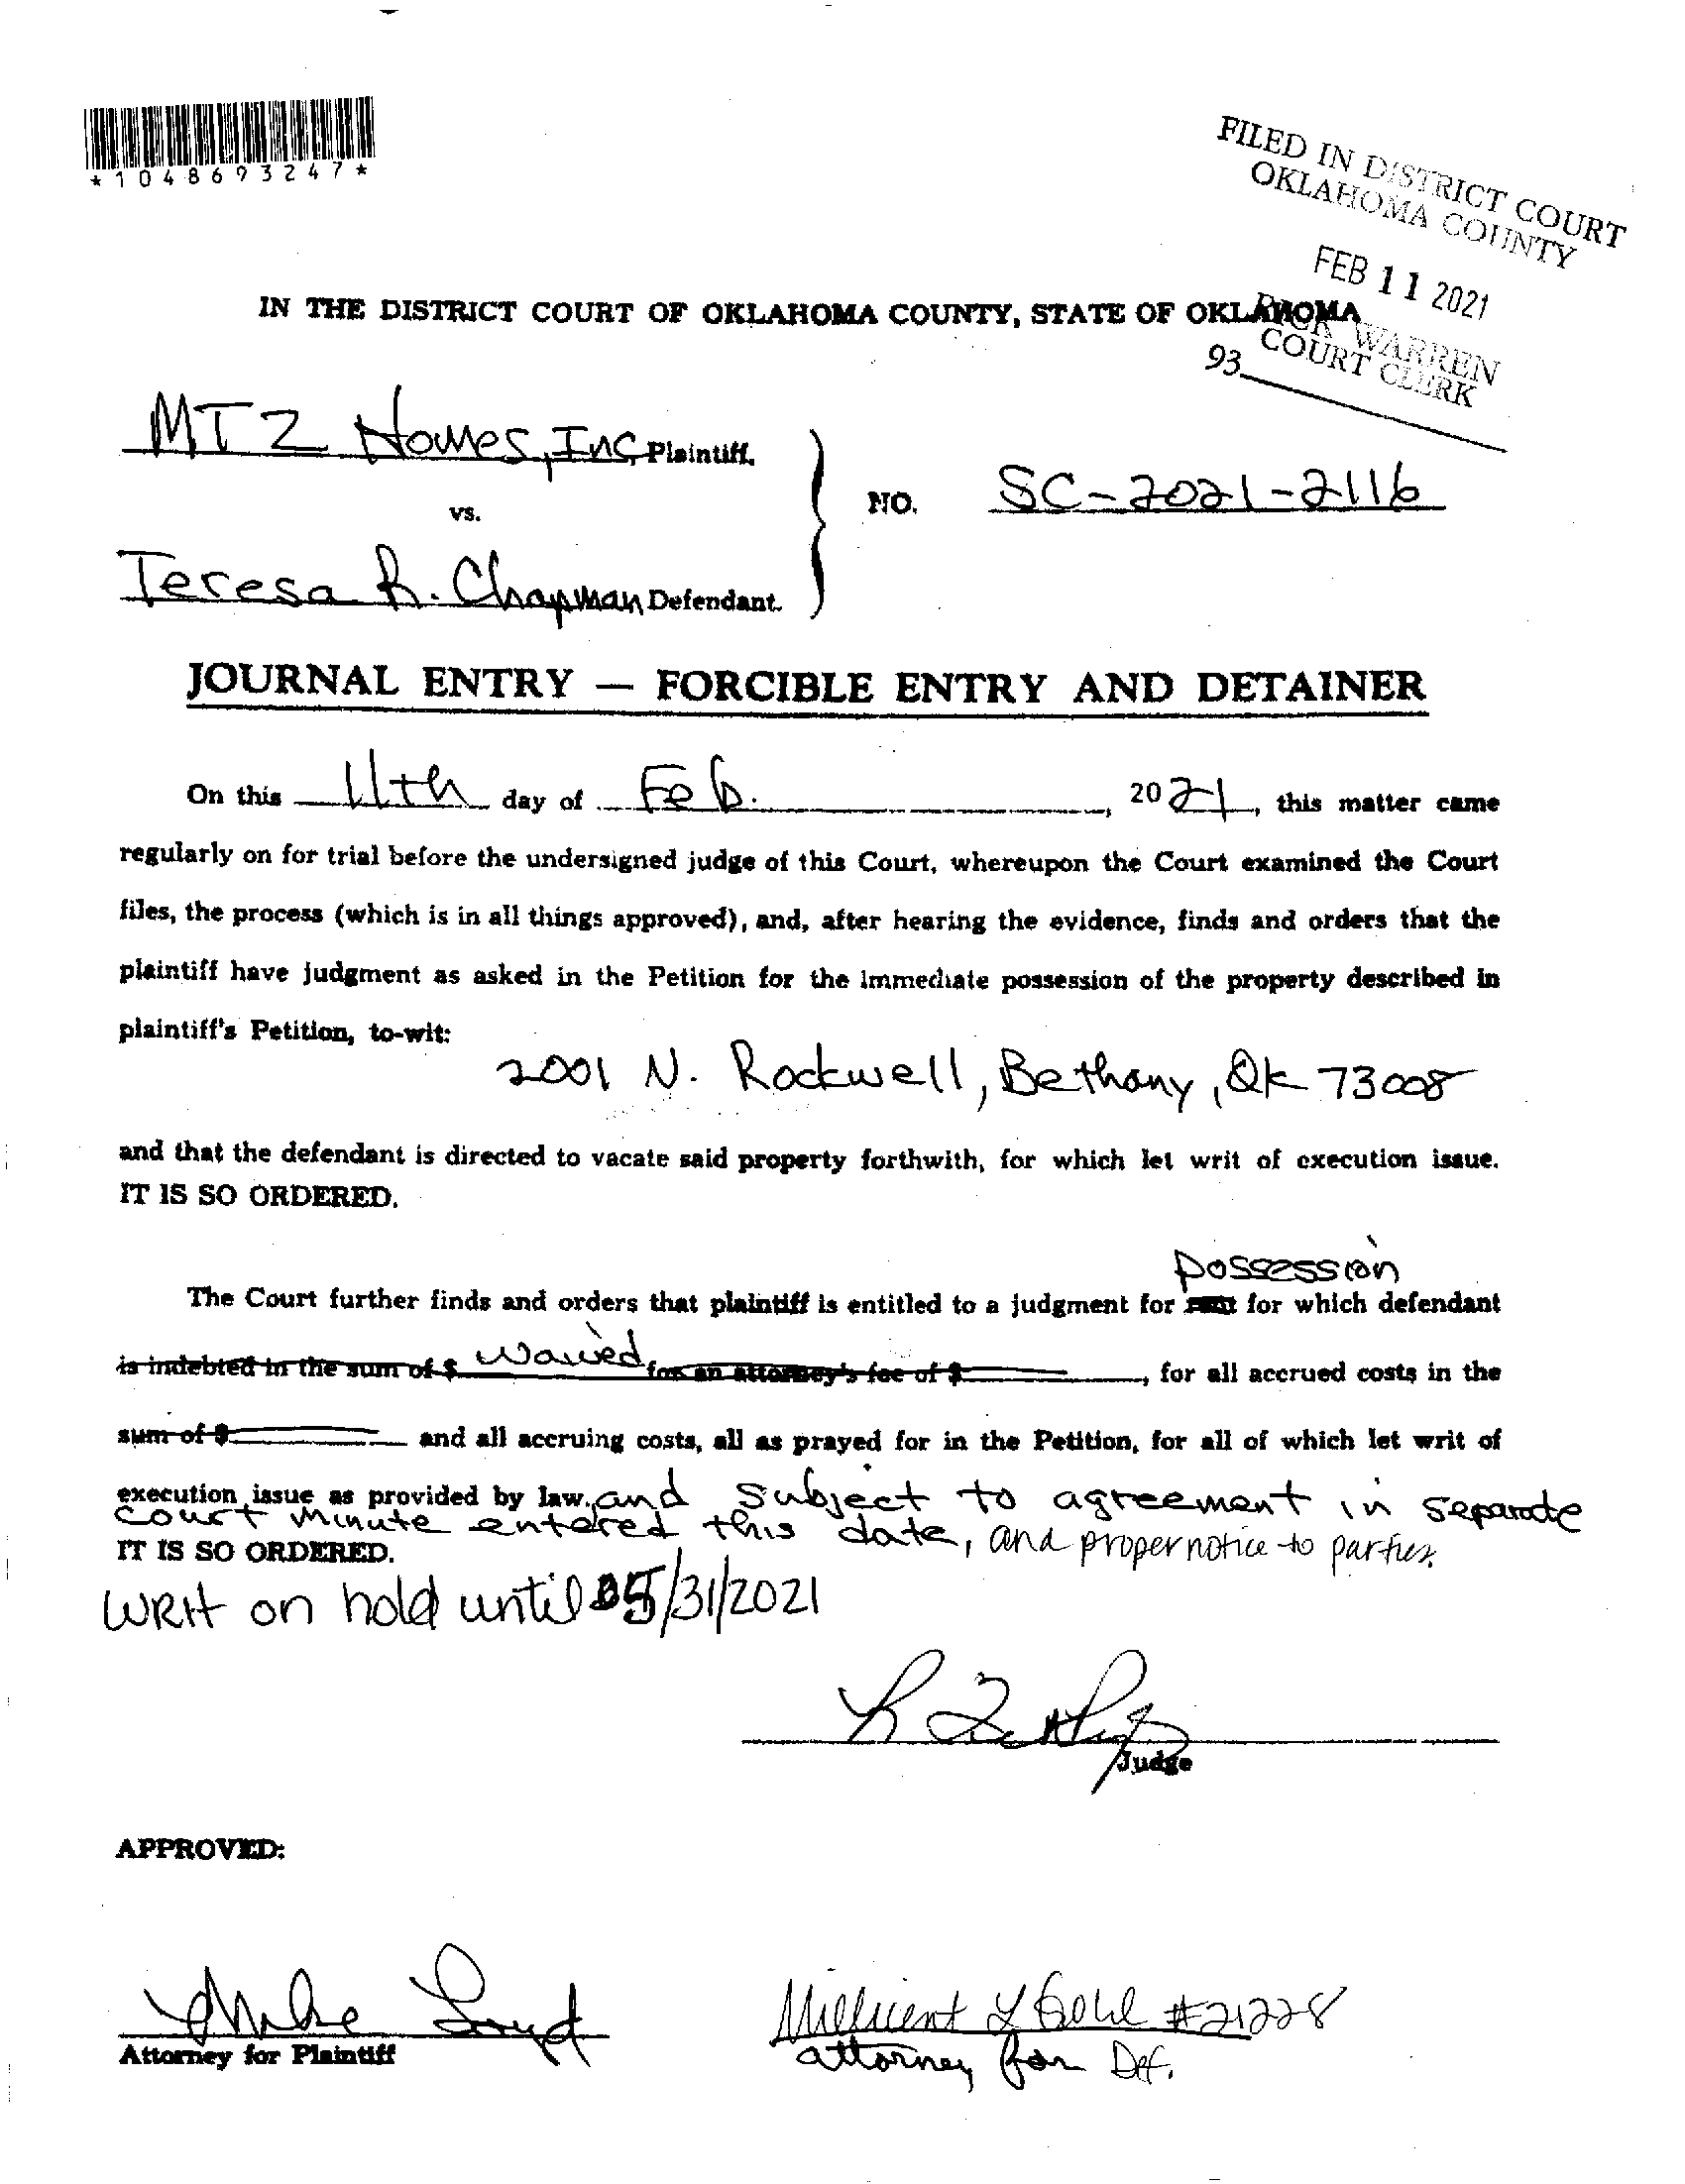 *1048693247*
FILED IN DISTRICT COURT
OKLAHOMA COUNTY
FEB 11 2021
IN THE DISTRICT COURT OF OKLAHOMA COUNTY, STATE OF OKLAHOMA
RICK WARREN
COURT CLERK
93
MTZ Homes, Inc, Plaintiff,
vs.
NO. SC-2021-2116
Teresa R. Chapman Defendant.
JOURNAL ENTRY — FORCIBLE ENTRY AND DETAINER
On this 11th day of Feb. , 2021, this matter came
regularly on for trial before the undersigned judge of this Court, whereupon the Court examined the Court
files, the process (which is in all things approved), and, after hearing the evidence, finds and orders that the
plaintiff have judgment as asked in the Petition for the immediate possession of the property described in
plaintiff's Petition, to-wit:
2001 N. Rockwell, Bethany, Ok 73008
and that the defendant is directed to vacate said property forthwith, for which let writ of execution issue.
IT IS SO ORDERED.
possession
The Court further finds and orders that plaintiff is entitled to a judgment for rent for which defendant
is indebted in the sum of $ waived for an attorney's fee of $ , for all accrued costs in the
sum of $ and all accruing costs, all as prayed for in the Petition, for all of which let writ of
execution issue as provided by law. and subject to agreement in separate
court minute entered this date, and proper notice to parties.
IT IS SO ORDERED.
WRIt on hold until 05/31/2021
Judge
APPROVED:
Attorney for Plaintiff
Millicent L #21228
attorney for Def.